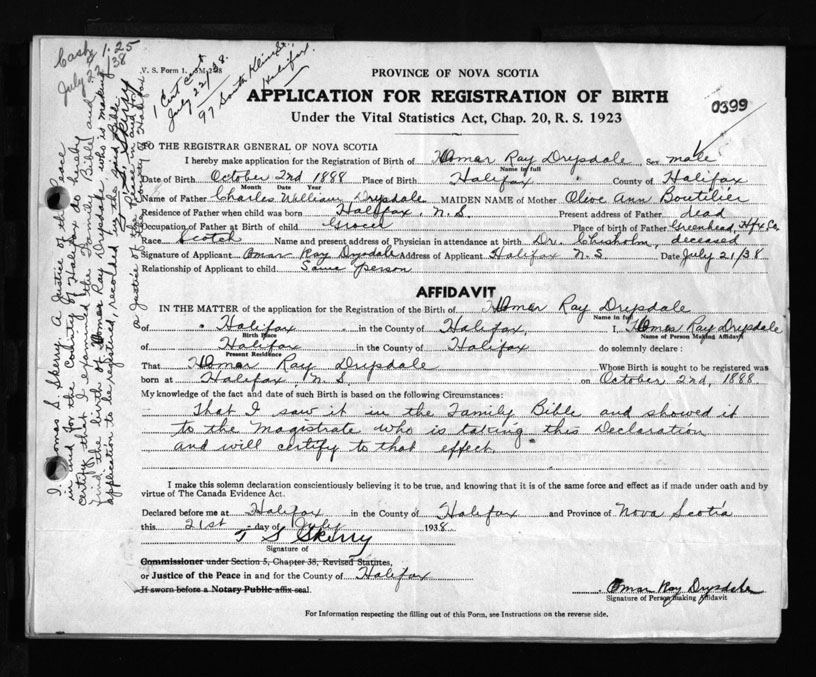 Cash 1.25
July 22/38
V. S. Form 1.
1 Cert cert
July 22/38.
97 South Kline St.
Halifax.
PROVINCE OF NOVA SCOTIA
APPLICATION FOR REGISTRATION OF BIRTH
Under the Vital Statistics Act, Chap. 20, R. S. 1923
0399
TO THE REGISTRAR GENERAL OF NOVA SCOTIA
I hereby make application for the Registration of Birth of Omar Ray Drysdale Sex male
Name in full
Date of Birth October 2nd 1888 Place of Birth Halifax County of Halifax
Month Date Year
Name of Father Charles William Drysdale MAIDEN NAME of Mother Olive Ann Boutilier
Residence of Father when child was born Halifax, N.S. Present address of Father dead
Occupation of Father at Birth of child Grocer Place of birth of Father Greenhead, Hfx Co
Race Scotch Name and present address of Physician in attendance at birth Dr. Chisholm, deceased
Signature of Applicant Omar Ray Drysdale Address of Applicant Halifax N.S. Date July 21/38
Relationship of Applicant to child Same person
AFFIDAVIT
IN THE MATTER of the application for the Registration of the Birth of Omar Ray Drysdale
Name in full
of " Halifax " in the County of Halifax, I, Omar Ray Drysdale
Birth Place Name of Person Making Affidavit
of Halifax in the County of Halifax do solemnly declare :
Present Residence
That Omar Ray Drysdale Whose Birth is sought to be registered was
born at Halifax N.S. on October 2nd, 1888.
My knowledge of the fact and date of such Birth is based on the following Circumstances:
That I saw it in the Family Bible and showed it
to the Magistrate who is taking this Declaration
and will certify to that effect.
I make this solemn declaration conscientiously believing it to be true, and knowing that it is of the same force and effect as if made under oath and by
virtue of The Canada Evidence Act.
Declared before me at Halifax in the County of Halifax and Province of Nova Scotia
this 21st day of July 1938.
T S Skerry
Signature of
Commissioner under Section 5, Chapter 38, Revised Statutes,
or Justice of the Peace in and for the County of Halifax
If sworn before a Notary Public affix seal.
Omar Ray Drysdale
Signature of Person making Affidavit
For Information respecting the filling out of this Form, see Instructions on the reverse side.
I, Thomas S. Skerry, a Justice of the Peace
in and for the County of Halifax do hereby
certify that I examined the Family Bible and
find the birth of Omar Ray Drysdale who is making
application to be registered, recorded in the said Bible
T. S. Skerry
a Justice of the Peace in and for
the County of Halifax